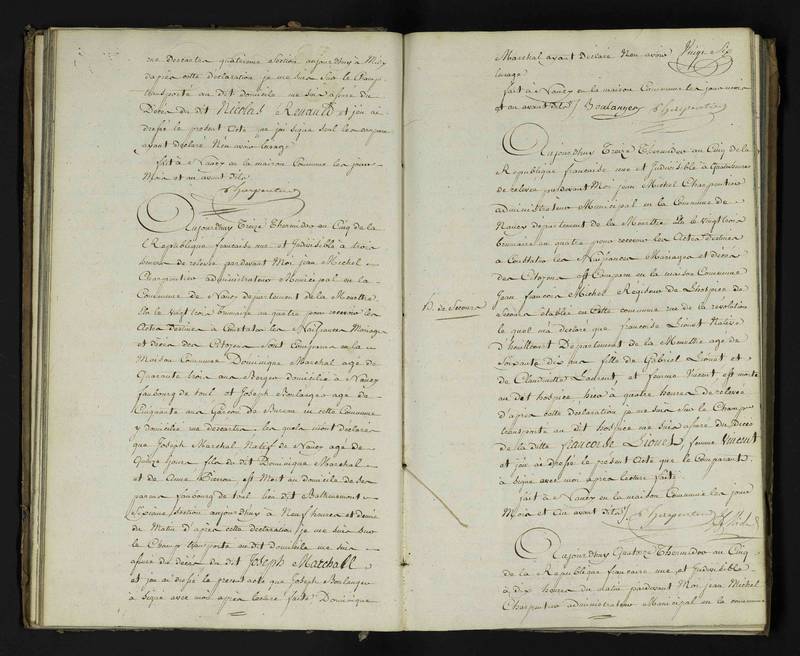 rue Descartes quatrieme Section aujourdhuy à Midy
dapres cette declaration je me suis sur le champ
transporté au dit domicile me suis assuré du
Decès du dit Nicolas Renauld et j'en ai
dressé le présent acte que j'ai signé seul les
ayant déclaré Non avoir l'usage
fait à Nancy en la maison Commune les jour
Mois et an avant dits
Charpentier
Aujourdhuy Treize Thermidor an Cinq de la
République française une et Indivisible à trois
heures de relevée pardevant Moi jean Michel
Charpentier administrateur Municipal en la
Commune de Nancy departement de la Meurthe
Elu le vingt trois brumaire an quatre pour recevoir les
Actes destinés à Constater les Naissances Mariages
et décès des Citoyens sont Comparus en la
Maison Commune Dominique Marchal agé de
Quarante trois ans Berger domicilié à Nancy
faubourg de toul et Joseph Boulanger agé de
Cinquante ans Garçon de Bureau en cette Commune
y domicilié rue descartes, les quels m'ont déclaré
que Joseph Marchal Natif de Nancy agé de
Quinze jours fils du dit Dominique Marchal
et de Anne est Mort au domicile de ses
parens faubourg de toul lieu dit
Sixieme Section aujourdhuy à Neuf heures et demie
du Matin d'après cette déclaration je me suis sur
le Champ transporté au dit domicile me suis
assuré du décès du dit Joseph Marchall
et j'en ai dressé le present acte que Joseph Boulanger
à signé avec moi après lecture faite Dominique
Marchal ayant déclaré Non avoir
l'usage
fait à Nancy en la maison Commune les jour mois
et an avant dits J Boulanger Charpentier
Aujourdhuy Treize Thermidor an Cinq de la
République française une et Indivisible à Quatre heures
de relevée pardevant Moi jean Michel Charpentier
administrateur Municipal en la Commune de
Nancy département de la Meurthe Elu le vingt trois
brumaire an quatre pour recevoir les Actes destinés
à Constater les Naissances Mariages et décès
des Citoyens est Comparu en la maison Commune
H. de Secours
Jean francois Michel Régisseur de L'hospice de
Secours établie en cette commune rue de la révolution
le quel m'a déclaré que francoise Lionet Native
d' Departement de la Meurthe agé de
Soixante dix ans fille de Gabriel Lionet et
de Claudinette Laurent, et femme Vincent est morte
au dit hospice hier à quatre heures de relevée
d'après cette déclaration je me suis Sur le Champ
transporté au dit hospice me suis assuré du Decès
de la dite francoise Lionet, femme Vincent
et j'en ai dressé le présent acte que le Comparant
a signé avec moi après lecture faite
fait à Nancy en la maison Commune les jour
Mois et an avant dits Charpentier
Aujourdhuy Quatorze Thermidor an Cinq
de la République francaise une et Indivisible
à dix heures du Matin pardevant Moi jean Michel
Charpentier administrateur Municipal en la commune